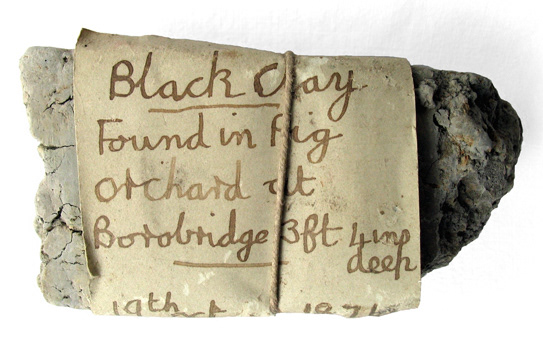 Black Clay
Found in Fig
orchard at
Borobridge 3ft 4 ins
deep
19th